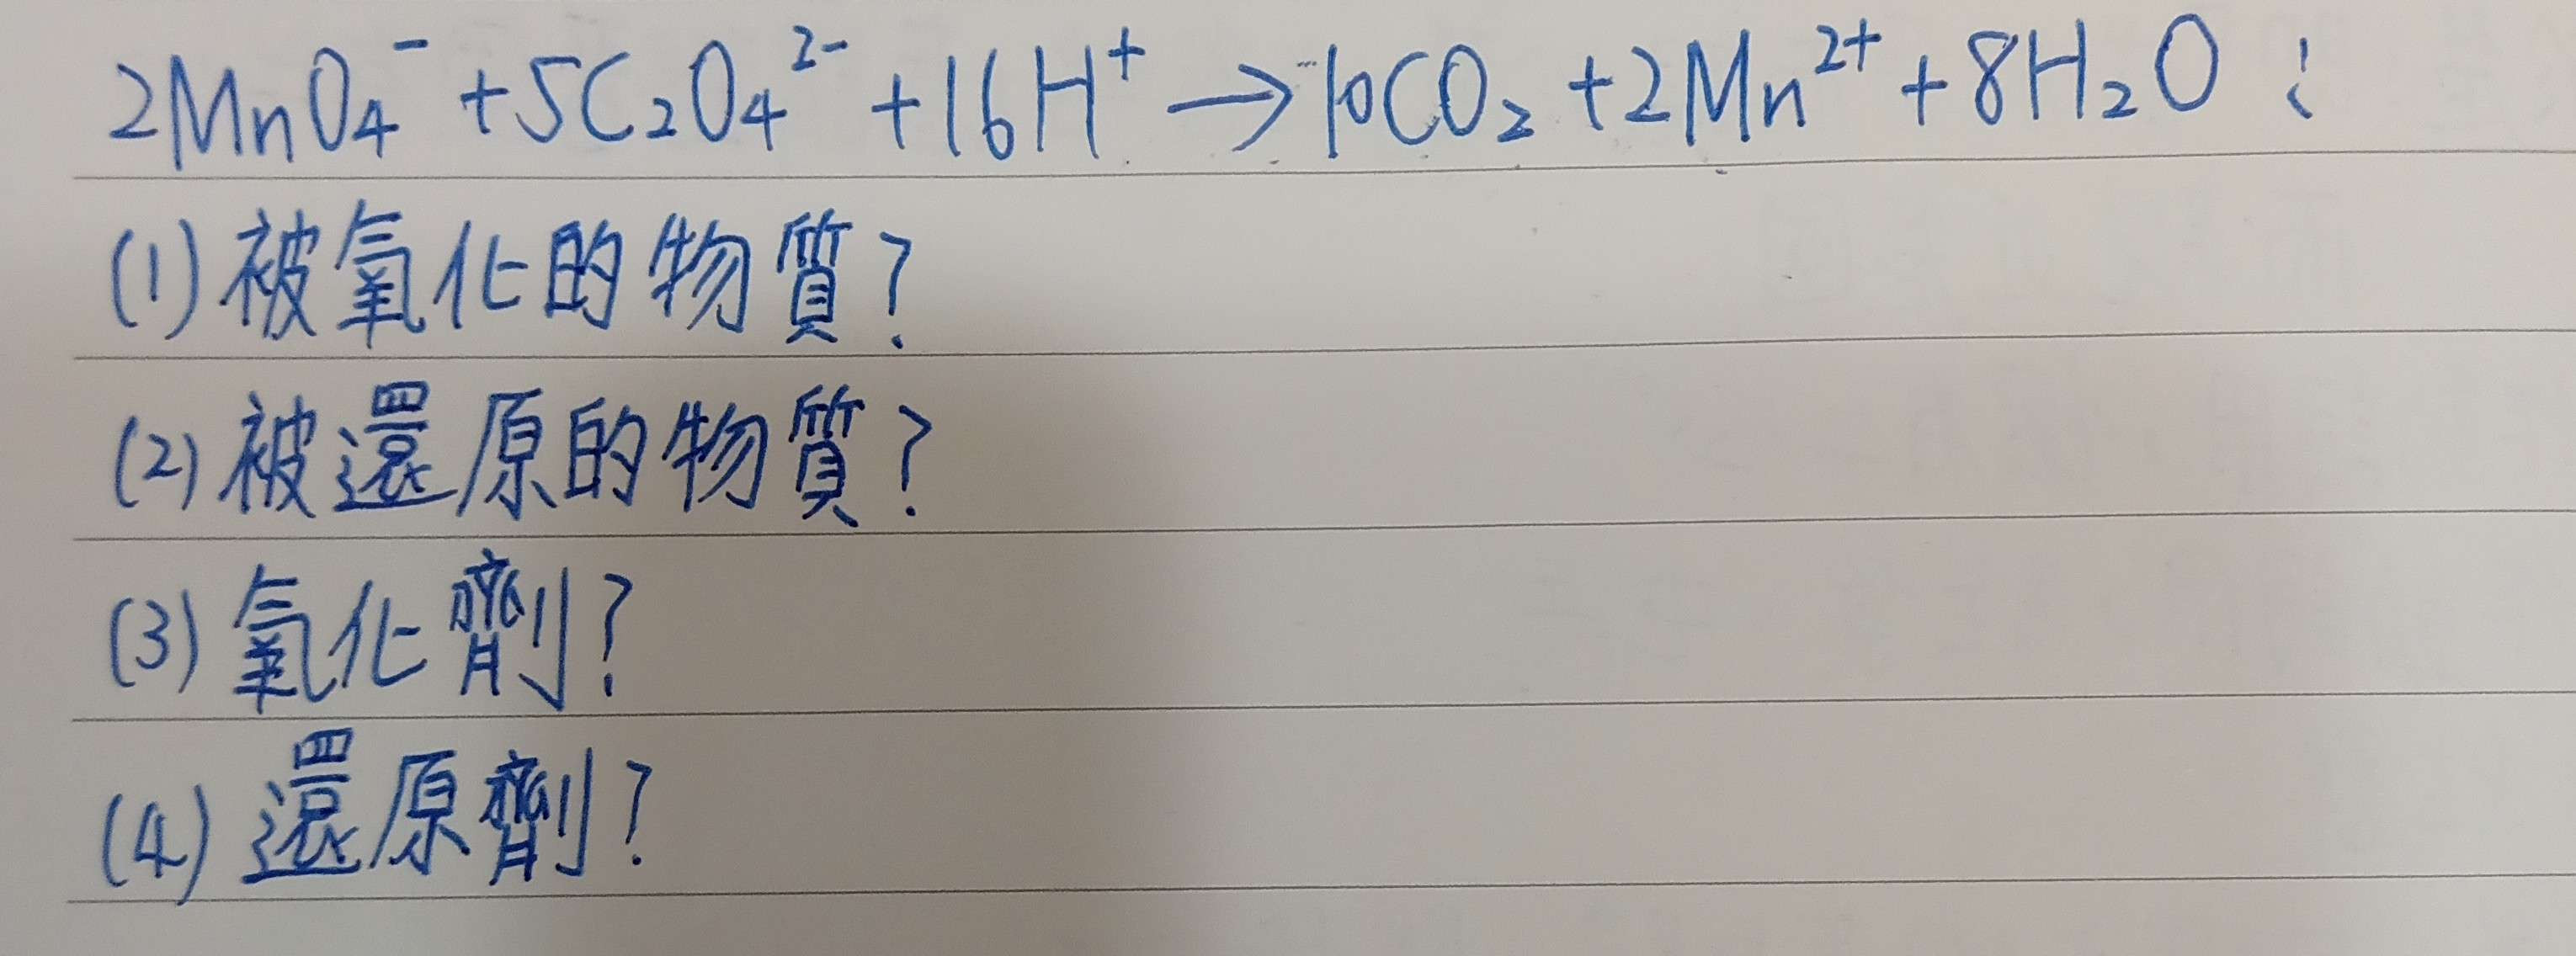 2MnO₄⁻ + 5C₂O₄²⁻ + 16H⁺ → 10CO₂ + 2Mn²⁺ + 8H₂O ;
(1) 被氧化的物質?
(2) 被還原的物質?
(3) 氧化劑?
(4) 還原劑?